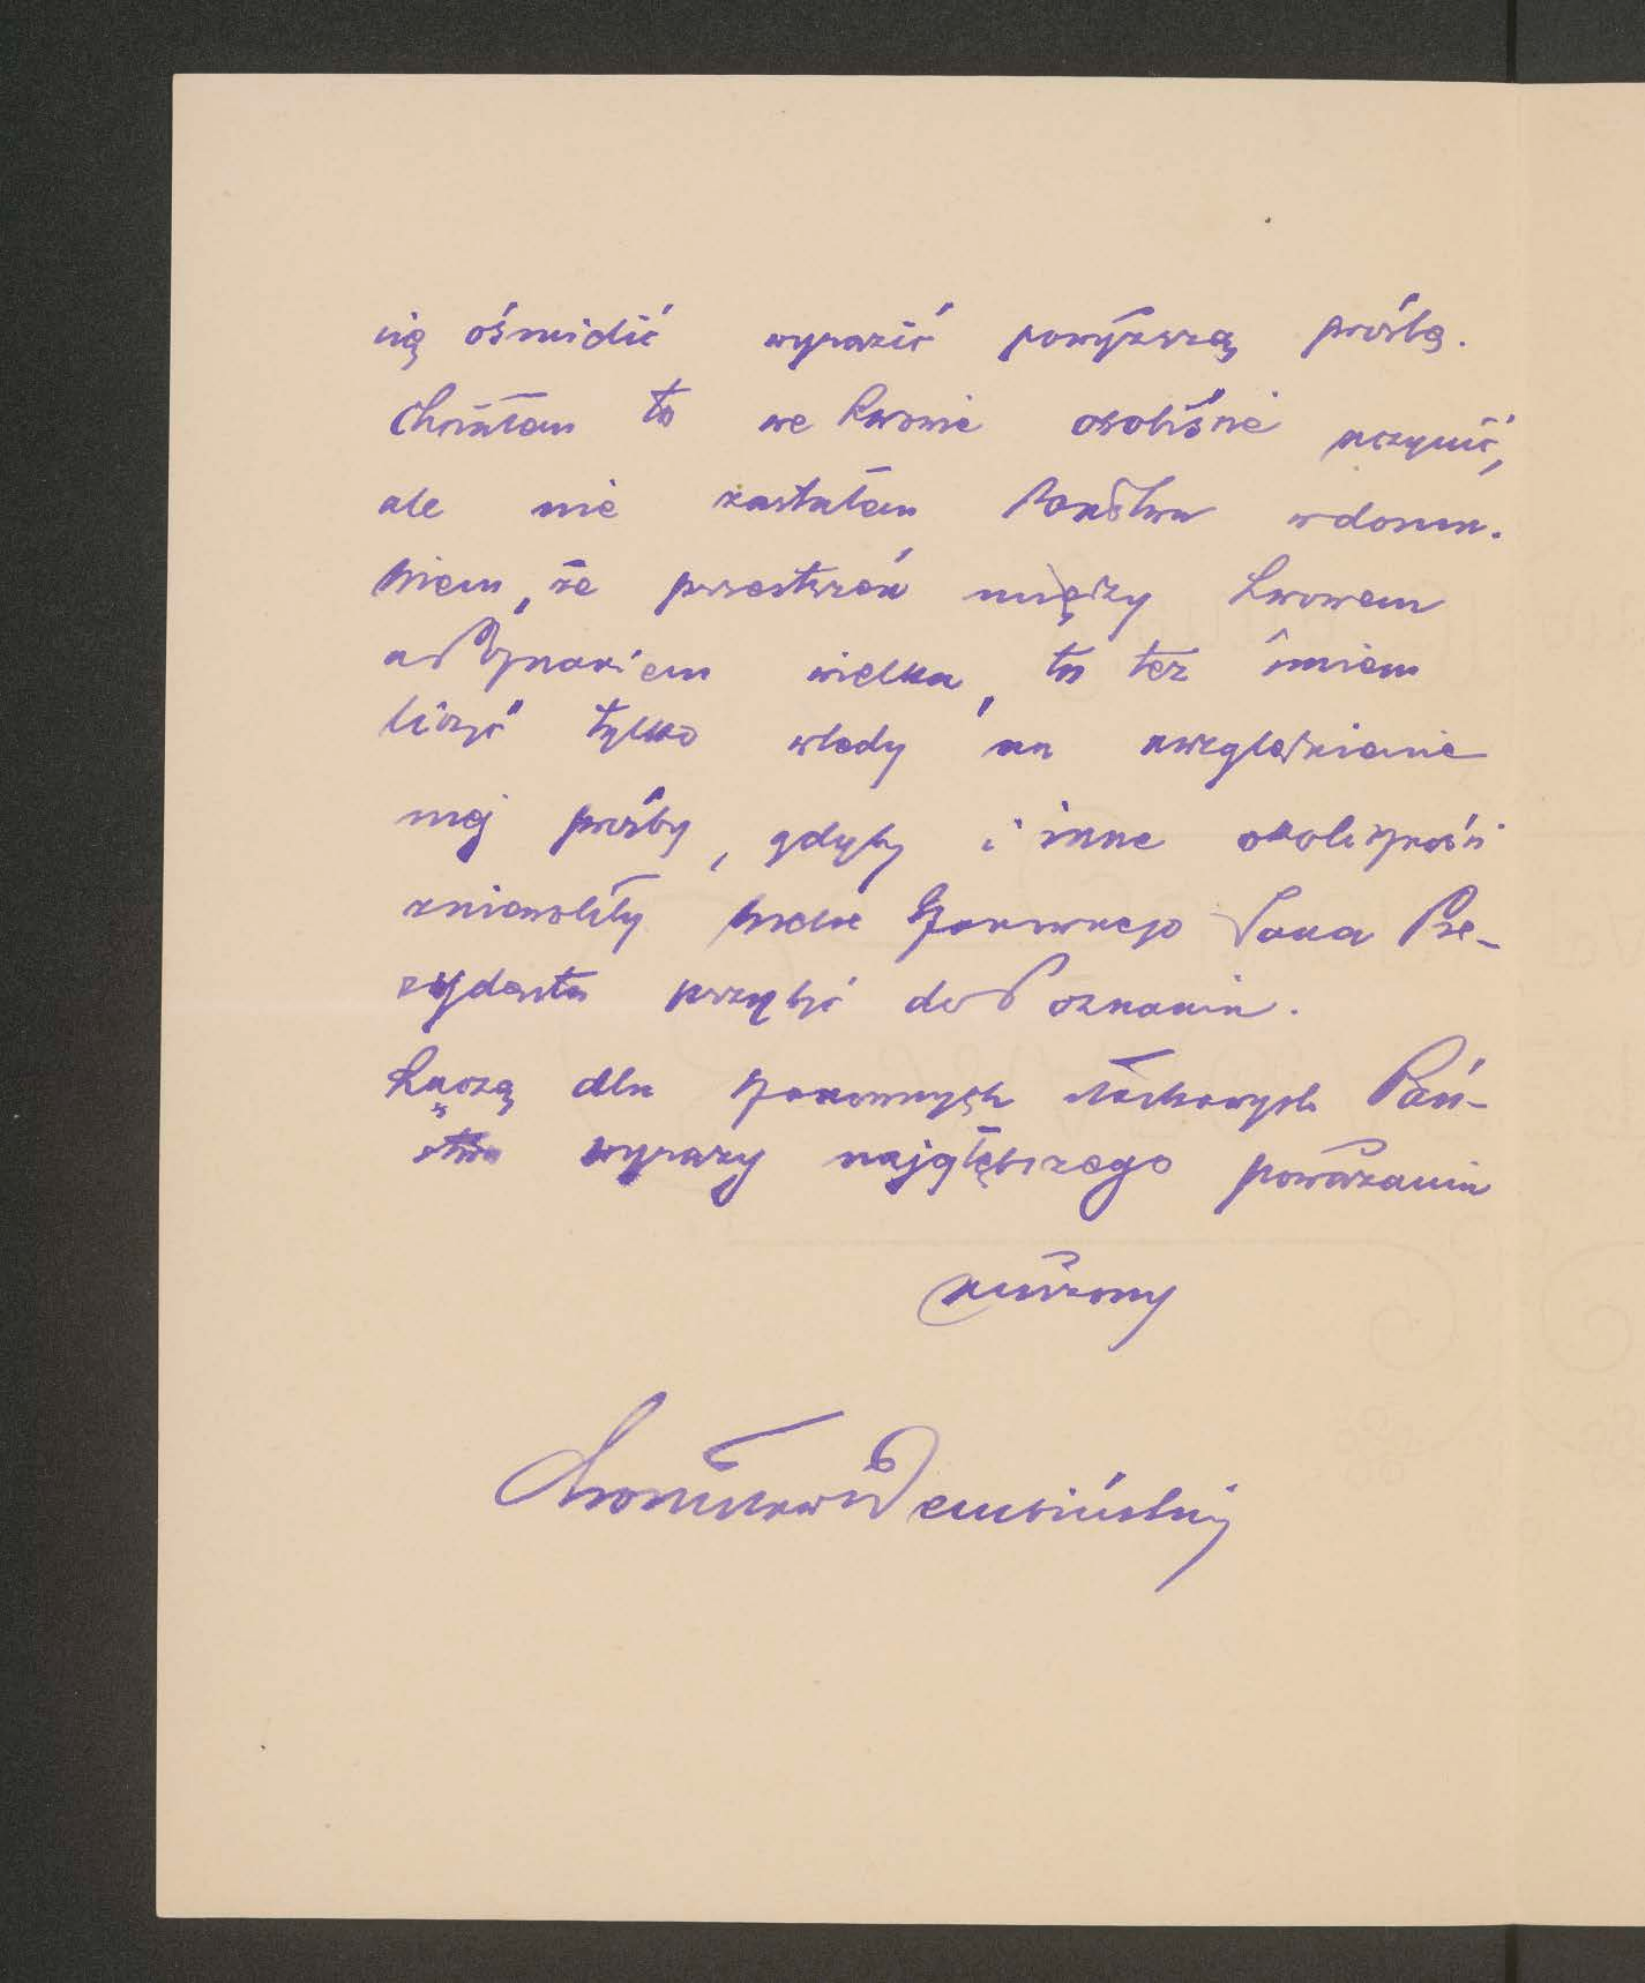 się ośmielić wyrazić powyższą prośbę.
Chciałem to we Lwowie osobiście uczynić,
ale nie zastałem Państwa w domu.
Wiem, że przestrzeń między Lwowem
a Poznaniem wielka, to też śmiem
liczyć tylko wtedy na uwzględnienie
mej prośby, gdyby i inne okoliczności
zniewoliły Wielce Szanownego Pana Pre-
zydenta przybyć do Poznania.
Łączę dla Szanownych Państwa
wyrazy najgłębszego poważania
uniżony
Bronisław Dembiński